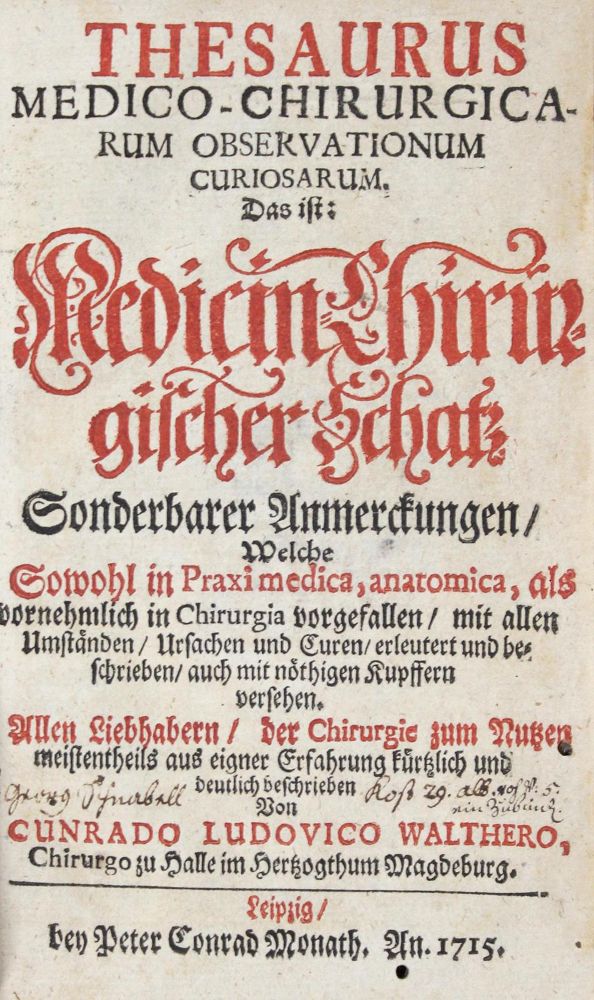 THESAURUS
MEDICO-CHIRURGICA-
RUM OBSERVATIONUM
CURIOSARUM.
Das ist:
Medicin-Chirur-
gischer Schatz
Sonderbarer Anmerckungen/
Welche
Sowohl in Praxi medica, anatomica, als
vornehmlich in Chirurgia vorgefallen/ mit allen
Umständen/ Ursachen und Curen/ erleutert und be-
schrieben/ auch mit nöthigen Kupffern
versehen.
Allen Liebhabern/ der Chirurgie zum Nutzen
meistentheils aus eigner Erfahrung kürtzlich und
deutlich beschrieben
Georg Schnabell
Kost 29. alb.
Von
CUNRADO LUDOVICO WALTHERO,
Chirurgo zu Halle im Hertzogthum Magdeburg.
Leipzig/
bey Peter Conrad Monath. An. 1715.